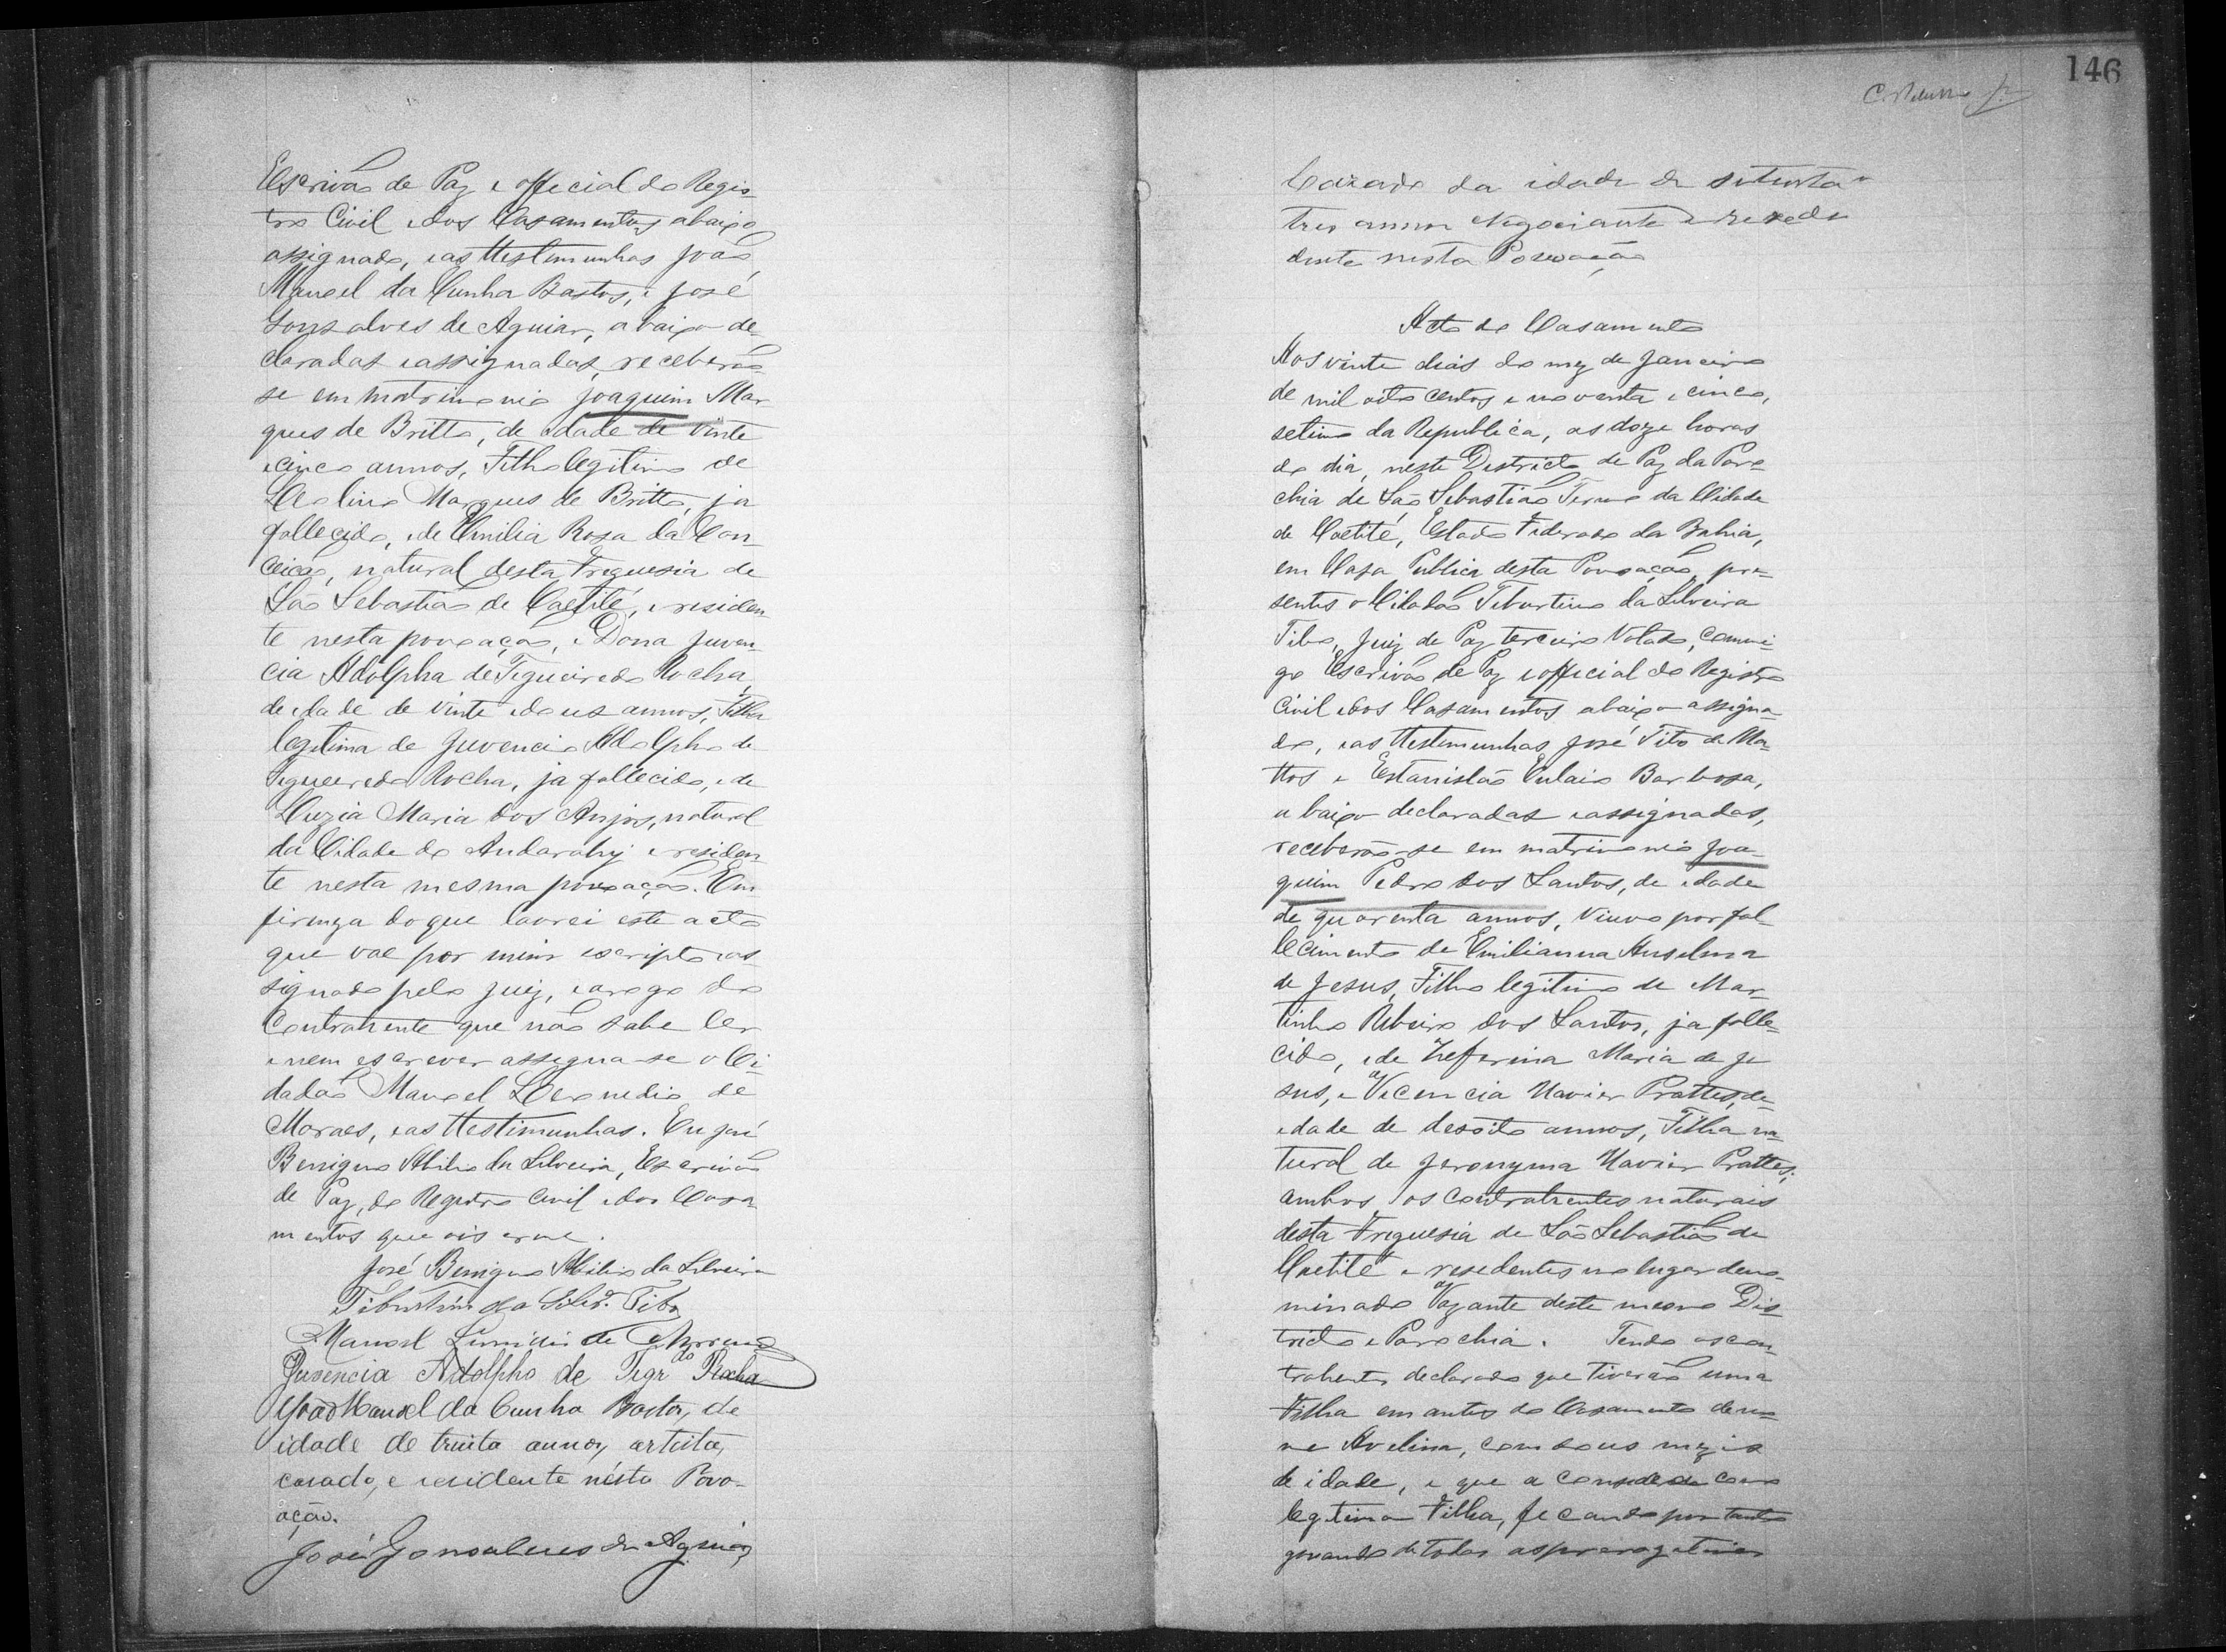 Escrivão de Paz e official do Regis-
tro Civil e dos Casamentos abaixo
assignado, e as testemunhas João
Manoel da Cunha Bastos, e José
Gonsalves de Aguiar, abaixo de-
claradas e assignadas, receberão-
se em matrimonio Joaquim Mar-
ques de Britto, de edade de vinte
e cinco annos, Filho legitimo de
Marques de Britto, ja
fallecido, e de Emilia Rosa da Con-
ceicão, natural desta Freguesia de
São Sebastião de Caetité, e residen-
te nesta povoação, e Dona Juven-
cia Adolpha de Figueiredo Rocha,
de edade de vinte e dous annos, Filha
legitima de Juvencio Adolpho de
Figueiredo Rocha, ja fallecido, e de
Luzia Maria dos Anjos, natural
da Cidade do Andarahy e residen-
te nesta mesma povoação. Em
firmeza do que lavrei este acto
que vae por mim escripto e as-
signado pelo Juiz, e a rogo do
Contrahente que não sabe ler
e nem escrever assigna-se o Ci-
dadão Manoel de
Moraes, e as testimunhas. Eu José
Benigno Abilio da Silveira, Escrivão
de Paz, do Registro Civil e dos Casa-
mentos que o is crevi.
José Benigno Abilio da Silveira
Tiburtino da Silvr.ª Tibo
Manoel de Moraes
Juvencia Adolpho de Figr.do Rocha
João Manoel da Cunha Bastos, de
idade de trinta annos, artista,
casado, e residente nésta Povo-
ação.
José Gonsalves de Aguiar,
146
Cazado da idade de setenta e
tres annos Negociante e rezede
dente nesta Povoação
Acto do Casamento
Aos vinte dias do mez de Janeiro
de mil oito centos e noventa e cinco,
setimo da Republica, as doze horas
do dia, neste Districto de Paz da Paro-
chia de São Sebastião Termo da Cidade
de Caetité, Estado Federado da Bahia,
em Casa Publica desta Povoação, pre-
sentes o Cidadão Tiburtino da Silveira
Tibo, Juiz de Paz terceiro Votado, commi-
go Escrivão de Paz e official do Registro
Civil e dos Casamentos abaixo assigna-
do, e as testemunhas José Tito de Ma-
ttos e Estanislão Eulaio Barbosa,
abaixo declaradas e assignadas,
receberão-se em matrimonio Joa-
quim Pedro dos Santos, de edade
de quarenta annos, Viuvo por fal-
lecimento de Emilianna Anselma
de Jesus, Filho legitimo de Mar-
tinho Ribeiro dos Santos, ja falle-
cido, e de Zefferina Maria de Je-
sus, e Vicencia Xavier Prattes, de
edade de desoito annos, Filha na-
tural de Jeronyma Xavier Prattes;
ambos os contrahentes naturais
desta Freguesia de São Sebastião de
Caetité e resedentes no lugar deno-
minado Vazante deste mesmo Dis-
tricto e Parochia. Tendo os con-
trahentes declarado que tiverão uma
Filha em antes do Casamento de no-
me Avelina, com dous mezis
de idade, e que a considera como
legitima Filha, ficando por tanto
gosando de todas as prerogativas